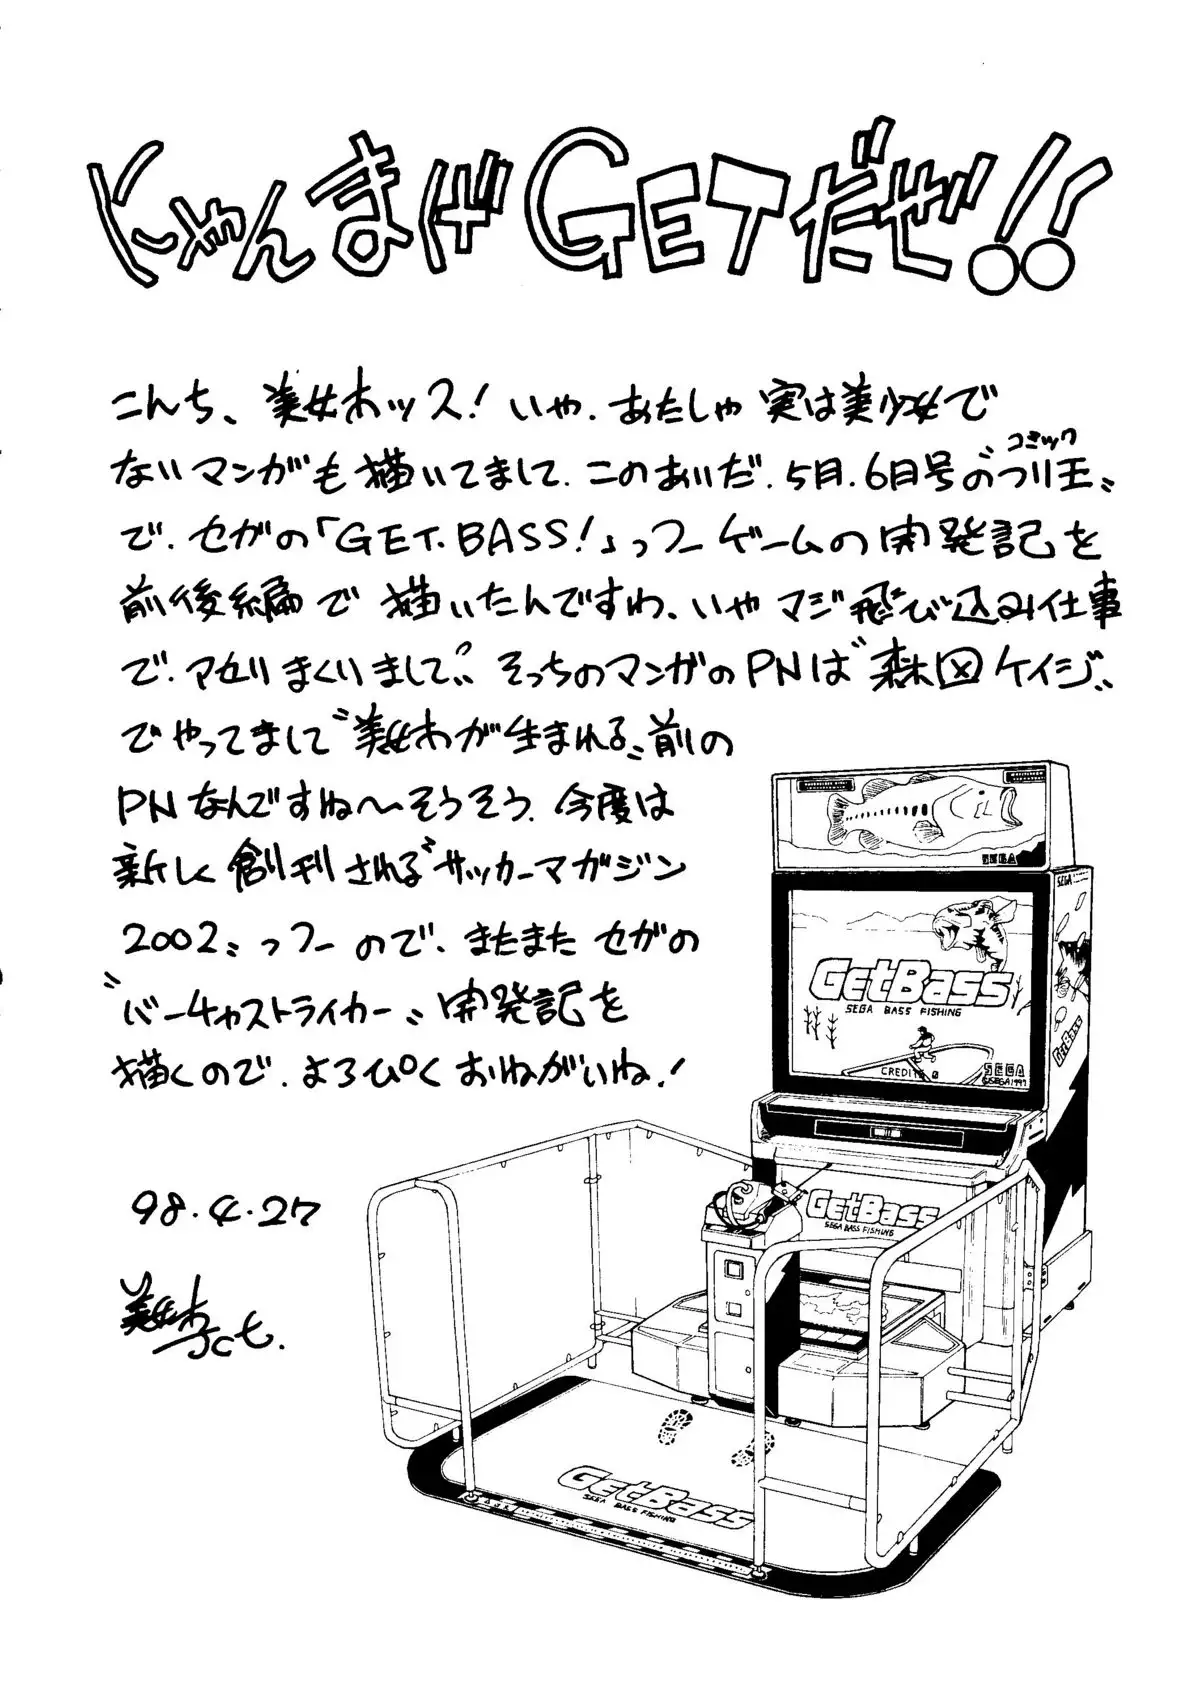 にゃんまげGETだぜ!!
こんち、美女木ッス!いや.あたしゃ実は美少女で
ないマンガも描いてまして.このあいだ.5月.6月号の〝つり王〟
コミック
で.セガの「GET.BASS!」っつーゲームの開発記を
前後編で描いたんですわ、いやマジ飛び込み仕事
で.アセりまくりまして〟そっちのマンガのPNは〝森図ケイジ〟
でやってまして〝美女木が生まれる〟前の
PNなんですね〜そうそう.今度は
新しく創刊される〝サッカーマガジン
2002〟っつーので.またまたセガの
〝バーチャストライカー〟開発記を
描くので.よろぴくおねがいね!
98.4.27
美女木Jct.
SEGA
SEGA
GetBass
SEGA BASS FISHING
CREDITS 0
SEGA
©SEGA1997
GetBass
GetBass
SEGA BASS FISHING
GetBass
SEGA BASS FISHING